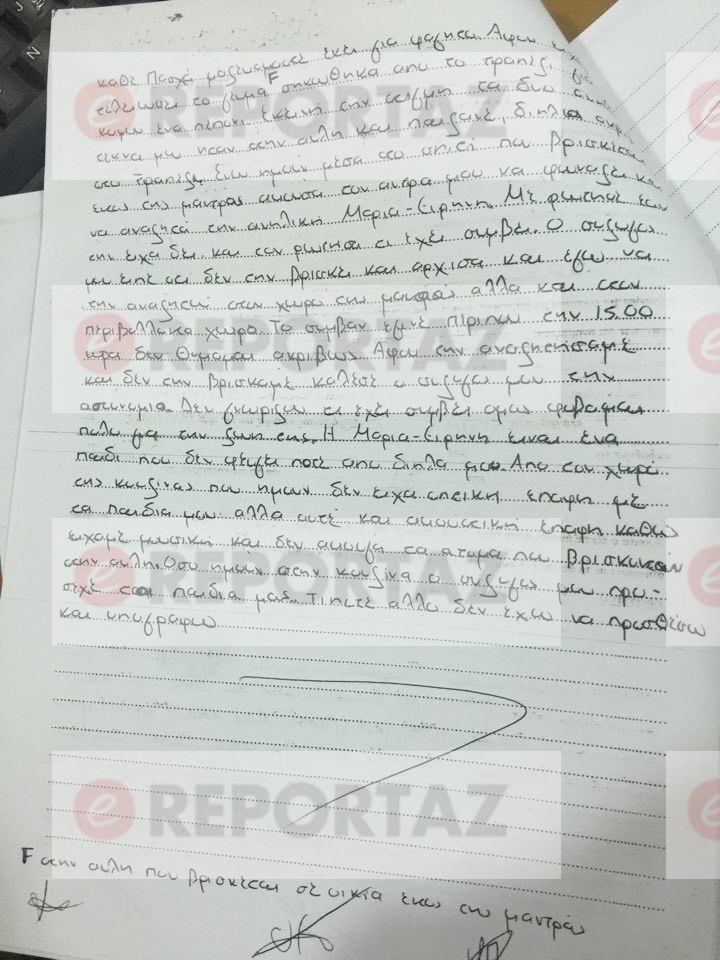 καθέ Πασχα μαζευομαστέ έκει για φαγητο. Αφου
τέλειωσέ το γευμα F σηκωθηκα απο το τραπεζι
κοψω ένα πέπονι. Εκεινη την στιγμη τα δυο
τεκνα μου ηταν στην αυλη και παιζανέ, διπλα
στο τραπεζι. Ενω ημουν μέσα στο σπιτι που βρισκεται
έντος της μαντρας ακουσα τον αντρα μου να φωναζέι και
να αναζητα την ανηλικη Μαρια-Ειρηνη. Μέ ρωτησέ έαν
την έιχα δει και τον ρωτησα τι έχέι συμβει. Ο συζυγος
μου έιπέ οτι δεν την βρισκέι και αρχισα και έγω να
την αναζητω στον χωρο της μαντρας αλλα και στον
περιβαλλοντα χωρο. Το συμβαν έγινέ πέριπου την 15.00
ωρα δεν θυμαμαι ακριβως. Αφου την αναζητησαμέ
και δέν την βρισκαμέ καλέσέ ο συζυγος μου την
αστυνομια. Δεν γνωριζω τι έχέι συμβέι ομως φοβαμαι
πολυ για την ζωη της. Η Μαρια-Ειρηνη έιναι ένα
παιδι που δέν φέυγέι ποτέ απο διπλα μου. Απο τον χωρο
της κουζινας που ημουν δέν έιχα οπτικη έπαφη μέ
τα παιδια μου αλλα ουτέ και ακουστικη έπαφη καθως
έιχαμέ μουσικη και δεν ακουγα τα ατομα που βρισκονταν
στην αυλη. Οσο ημουν στην κουζινα ο συζυγος μου προ-
σέχέ τα παιδια μας. Τιποτέ αλλο δέν έχω να προσθέσω
και υπογραφω
F στην αυλη που βρισκέται σέ οικια έντος της μαντρας
e REPORTAZ
e REPORTAZ
e REPORTAZ
e REPORTAZ